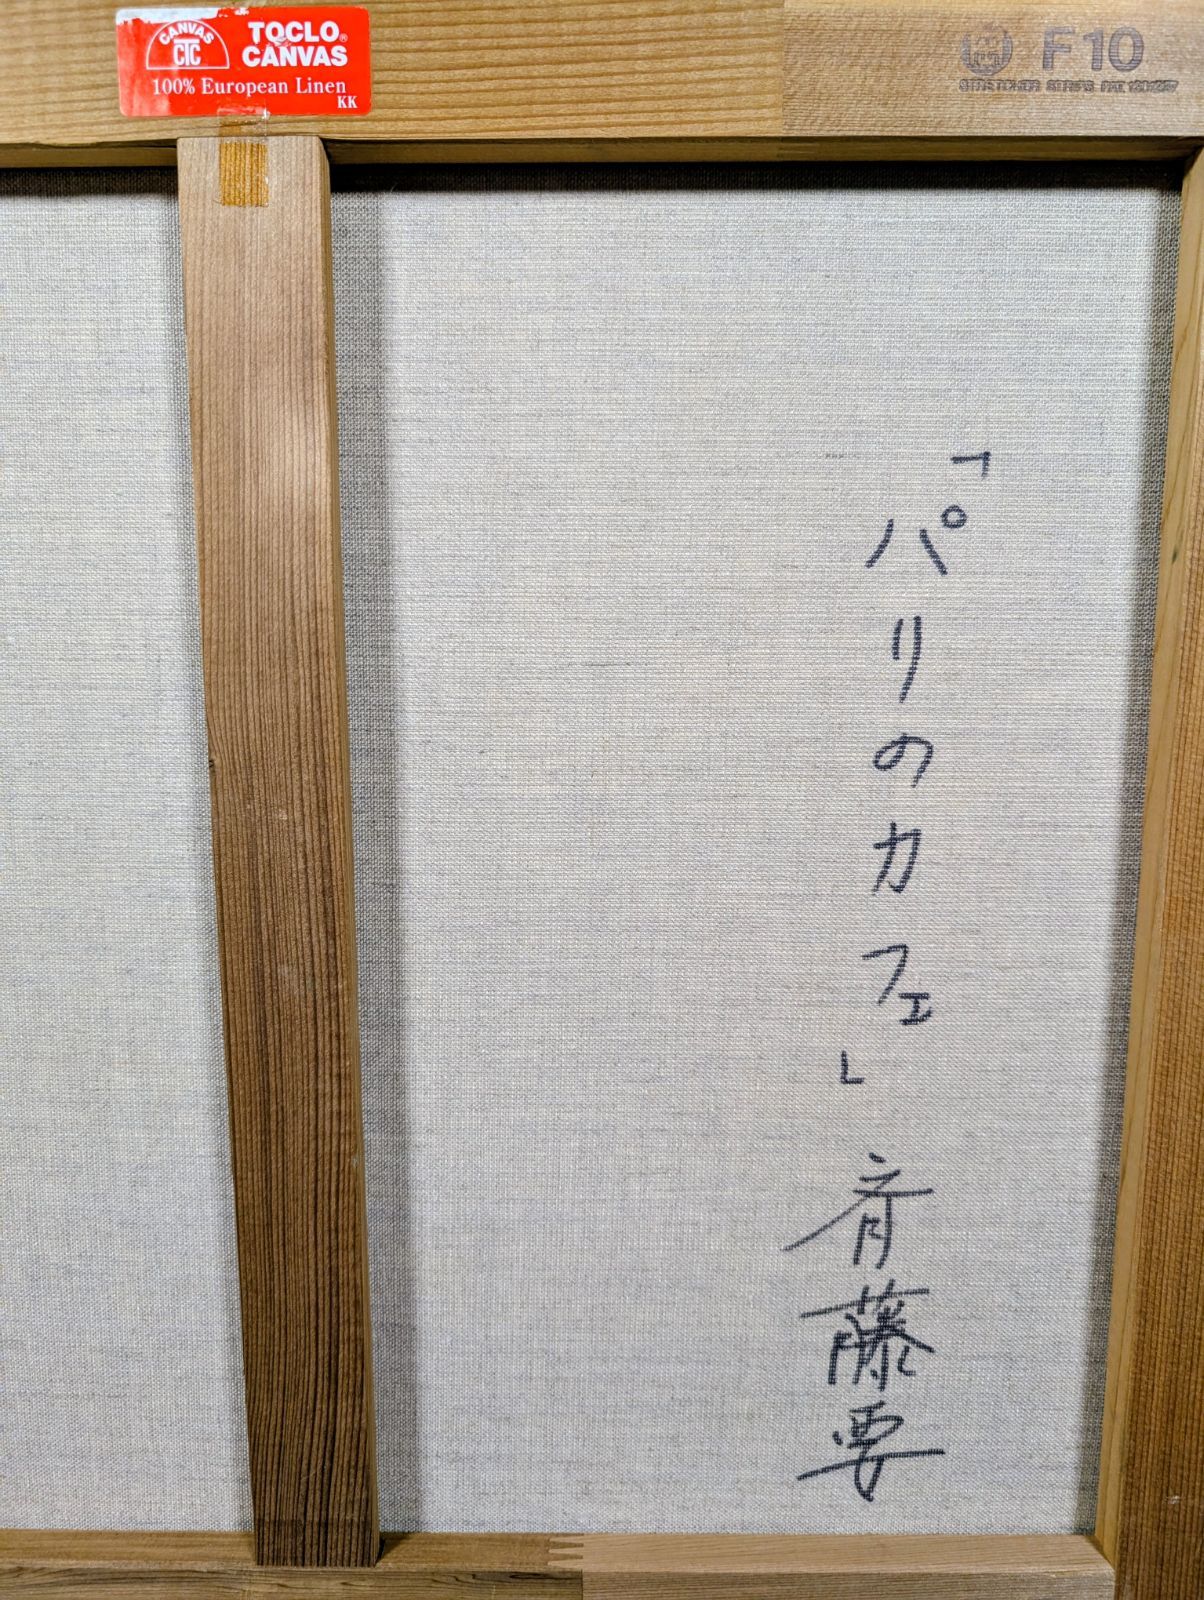 CANVAS
CTC
TOCLO®
CANVAS
100% European Linen
KK
F10
STRETCHER STRIPS
「パリのカフェ」斉藤要